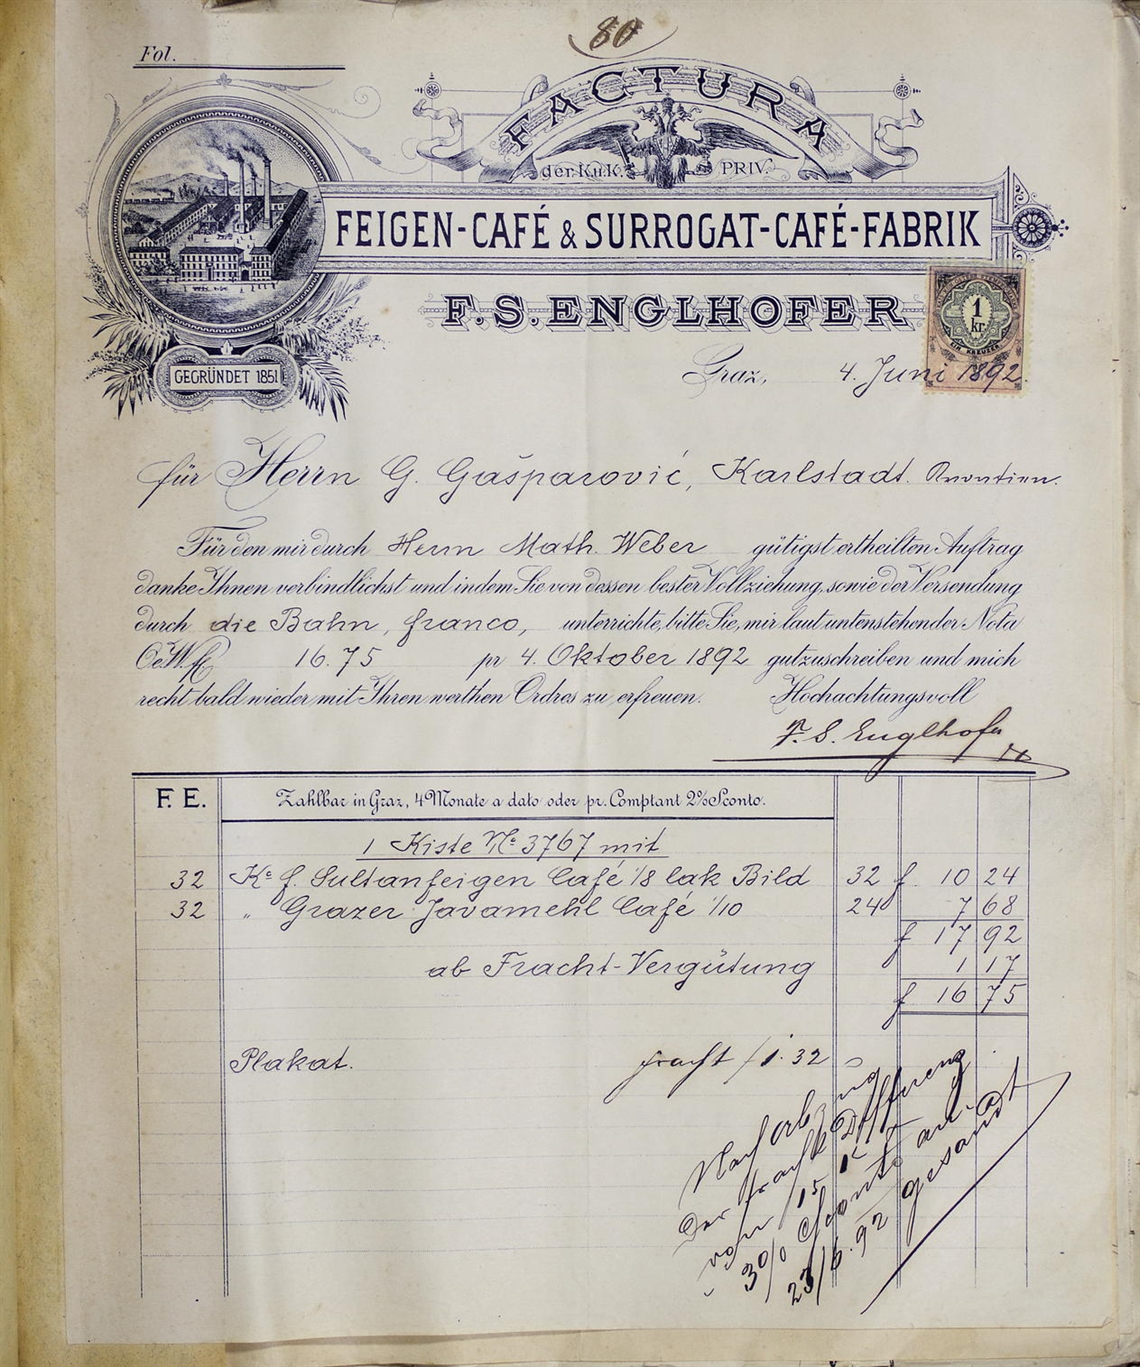 80
Fol.
FACTURA
der K.u.K. PRIV.
FEIGEN-CAFÉ & SURROGAT-CAFÉ-FABRIK
F. S. ENGLHOFER
1
kr.
EIN KREUZER
GEGRÜNDET 1851
Graz, 4. Juni 1892.
für Herrn G. Gašparović, Karlstadt.
Für den mir durch Herrn Math. Weber gütigst ertheilten Auftrag
danke Ihnen verbindlichst und indem Sie von dessen bester Vollziehung, sowie der Versendung
durch die Bahn, franco, unterrichte, bitte Sie, mir laut untenstehender Nota
Oe.W. fl. 16.75 pr 4. Oktober 1892 gutzuschreiben und mich
recht bald wieder mit Ihren werthen Ordres zu erfreuen. Hochachtungsvoll
F. S. Englhofer
F. E. Zahlbar in Graz, 4 Monate a dato oder pr. Comptant 2% Sconto.
1 Kiste No 3767 mit
32 Ko f. Sultanfeigen Café 1/8 lak Bild 32 f 10 24
32 " Grazer Javamehl Café 1/10 24 7 68
f 17 92
ab Fracht-Vergütung 1 17
f 16 75
Plakat. fracht f 1. 32
Nach
der fracht Differenz
von 15
3% Sconto
23/6. 92 gesandt